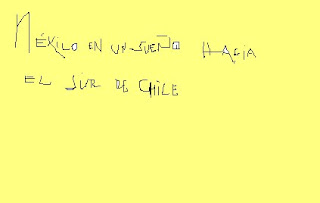 MÉXILO EN UN SUEÑO HACIA
EL SUR DE CHILE